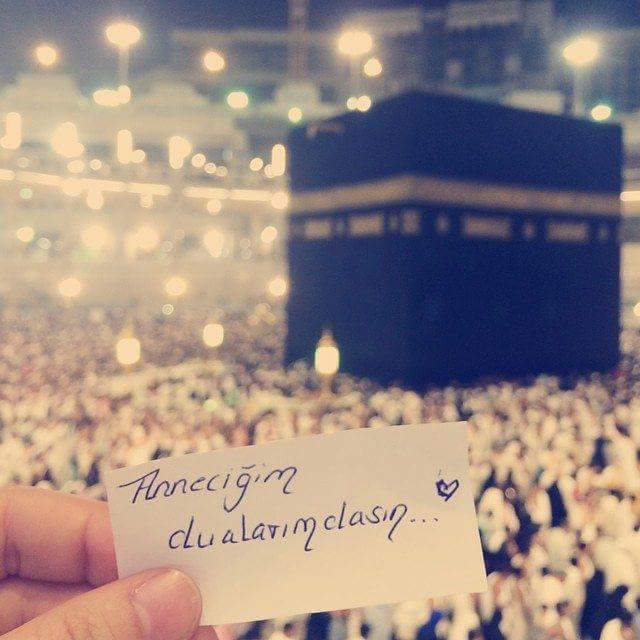 Anneciğim
dualarımdasın...